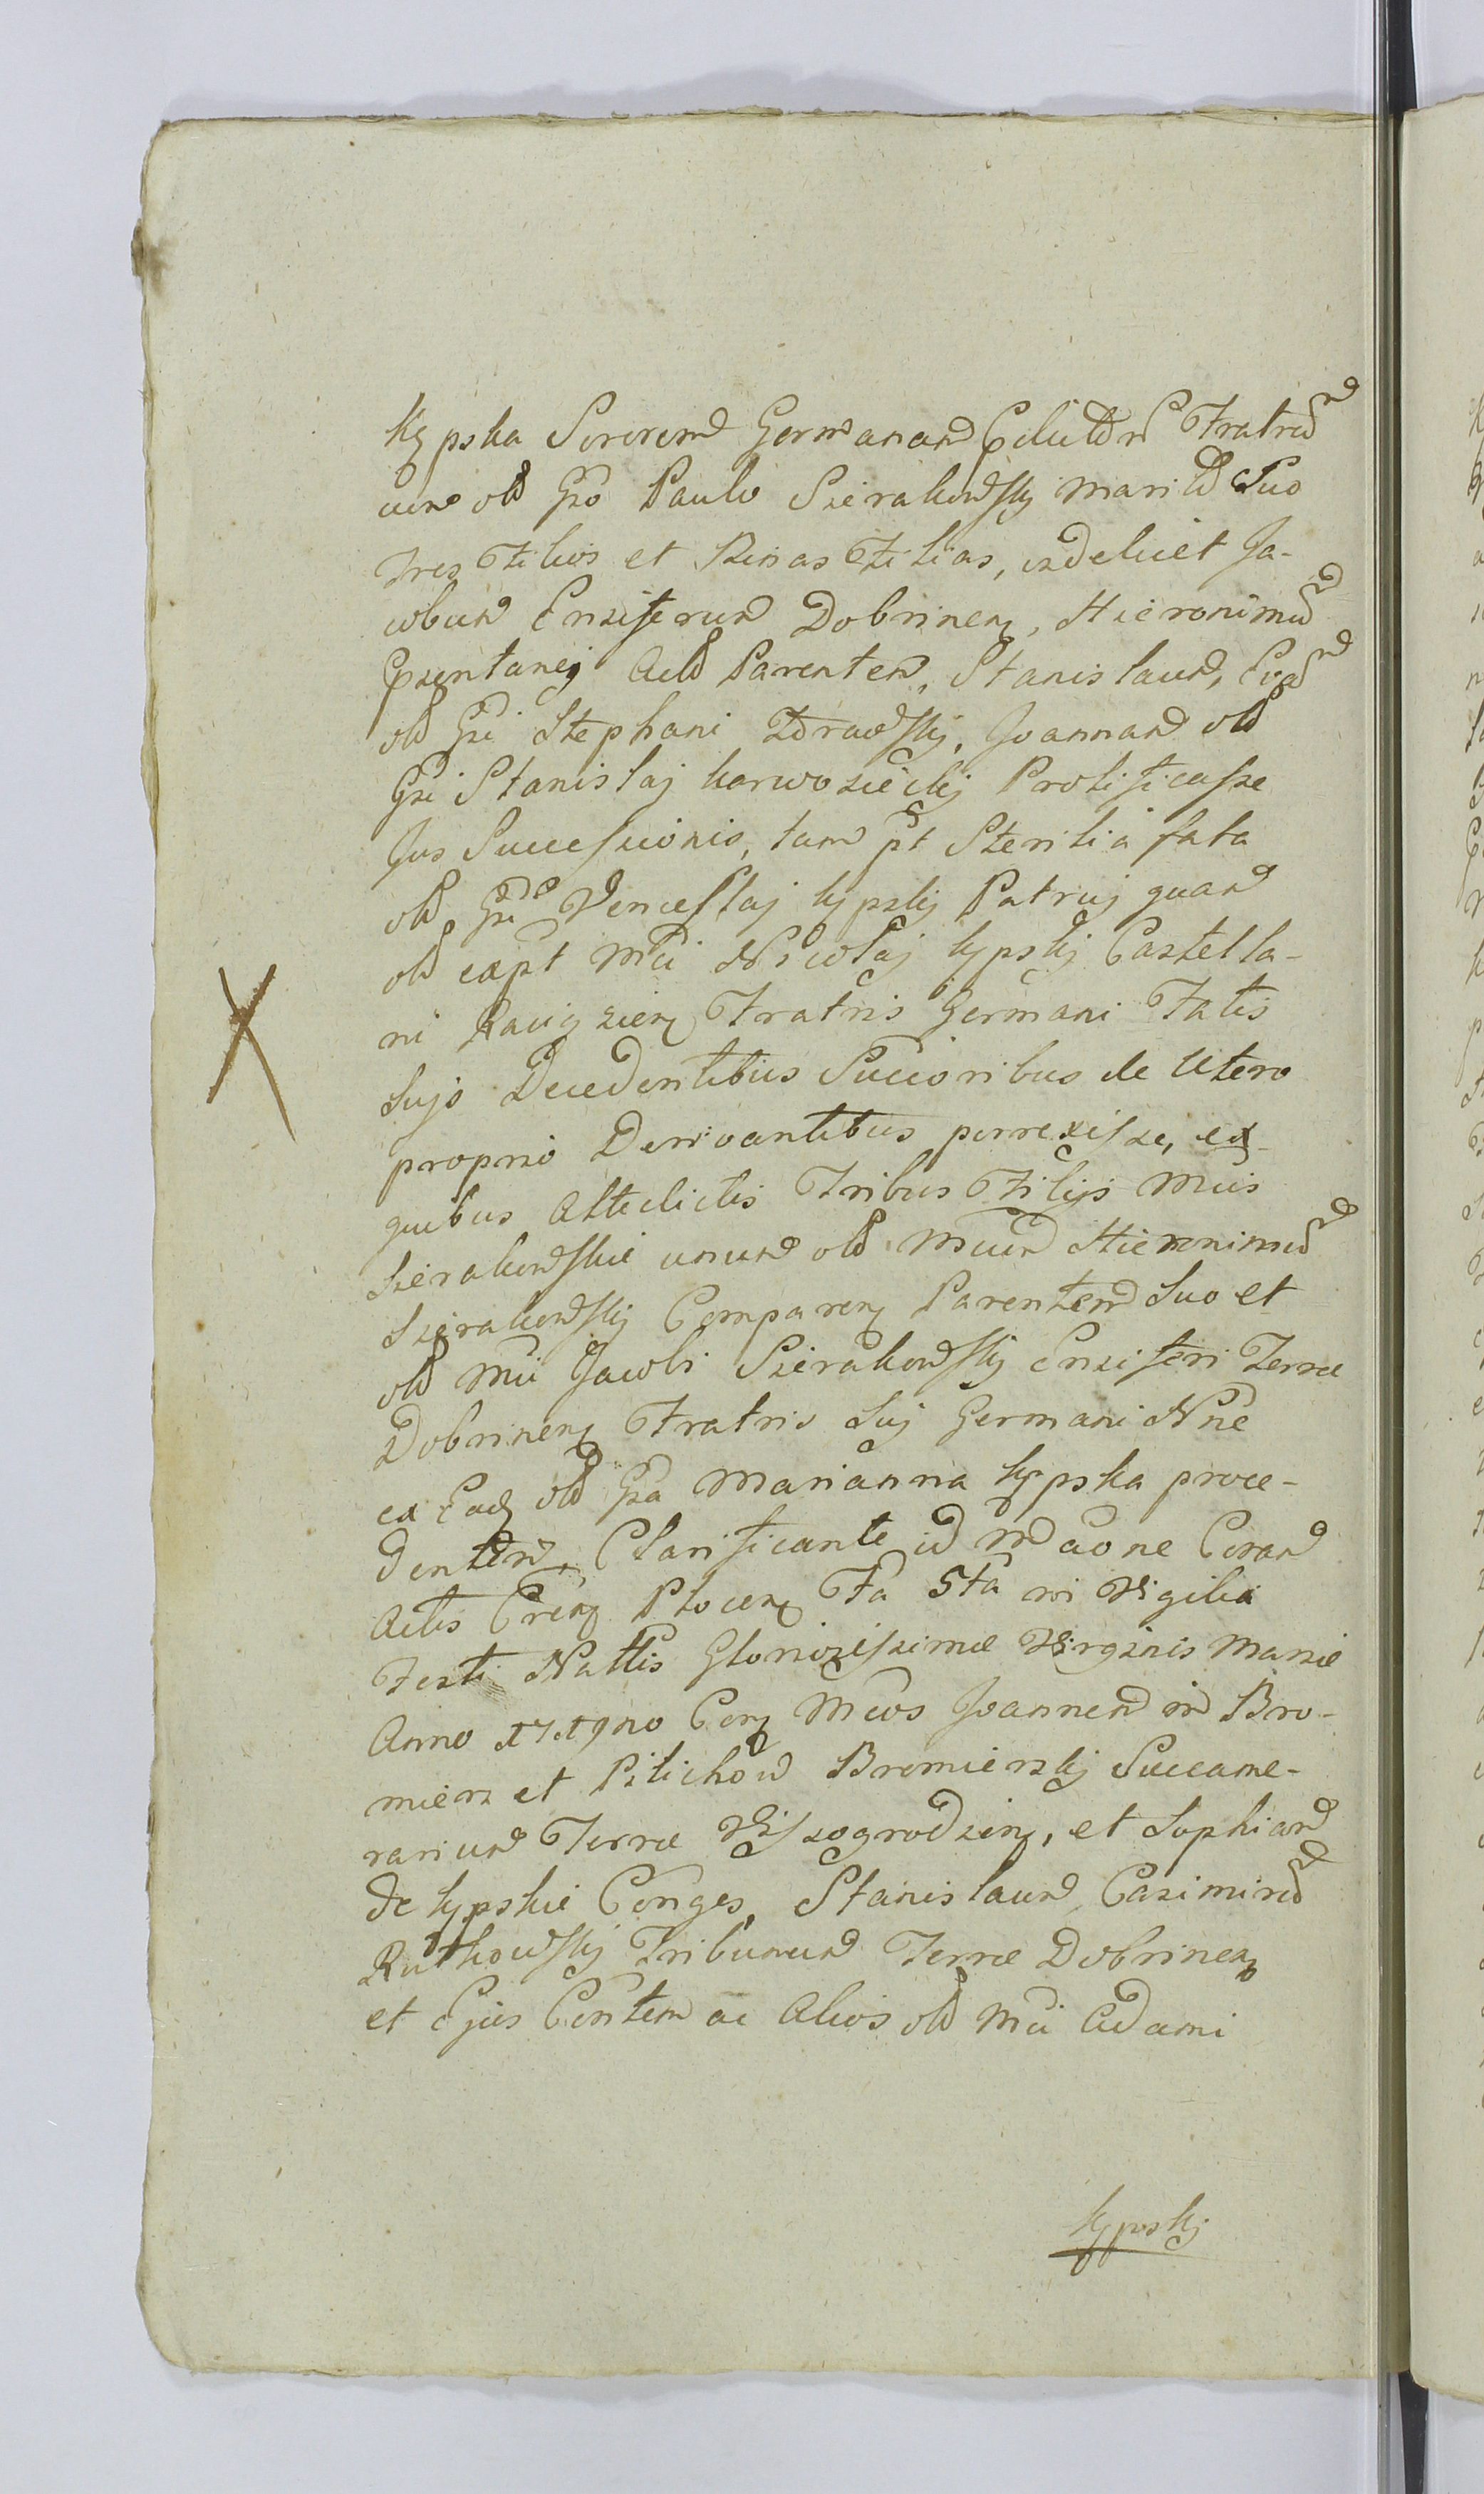 Kępska Sororem Germanam Fratrum
cum olĩ Gso Paulo Sierakowskij Marito Suo
Tres Filios et Binas Filias, videlicet Ja-
cobum Ensiferum Dobrinen, Hieronimum
Actĩ Parentem, Stanislaum, Evam
olĩ Gsi Stephani Zdrawskij, Joannam olĩ
Gsi Stanislaj Karwosieckij Prolificasse
Jus Successionis, tam pt Sterilia fata
olĩ Gsi Venceslaj Kępskij Patruj quam
olĩ expt Mci Nicolaj Kępskij Castella-
ni Raciązien Fratris Germani Fatis
Sujs Decedentibus Succioribus de Utero
proprio Derivantibus porrexisse, ex-
quibus Attactis Tribus Filijs Mcis
Sierakowskie unum olĩ Mcum Hieronimum
Sierakowskij Comparen Parentem Suo et
olĩ Mci Jacobi Sierakowskij Ensiferi Terræ
Dobrinen Fratris Suj Germani Nne
ex Eadq olĩ Gsa Marianna Kępska proce-
dentem, Clarificante id Mcaone Coram
Actis Cren Plocen Fa 5ta in Vigilia
Festi Nattis Gloriosissimæ Virginis Mariæ
Anno Cen Mcos Joannem in Bro-
mierz et Pilichowo Bromierskij Succame-
rarium Terræ Wyszogrodzien, et Sophiam
de Kępskie Conges, Stanislaum Casimirum
Rutkowskij Tribunum Terræ Dobrinen
et Ejus Contem ac Alios olĩ Mci Adami
Kępskij